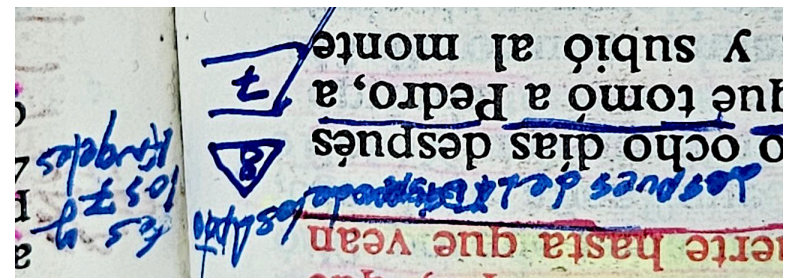 erte hasta que vean
despues de los
o ocho días después
8
que tomó a Pedro, a
7
y subió al monte
es y
los 7
Angeles